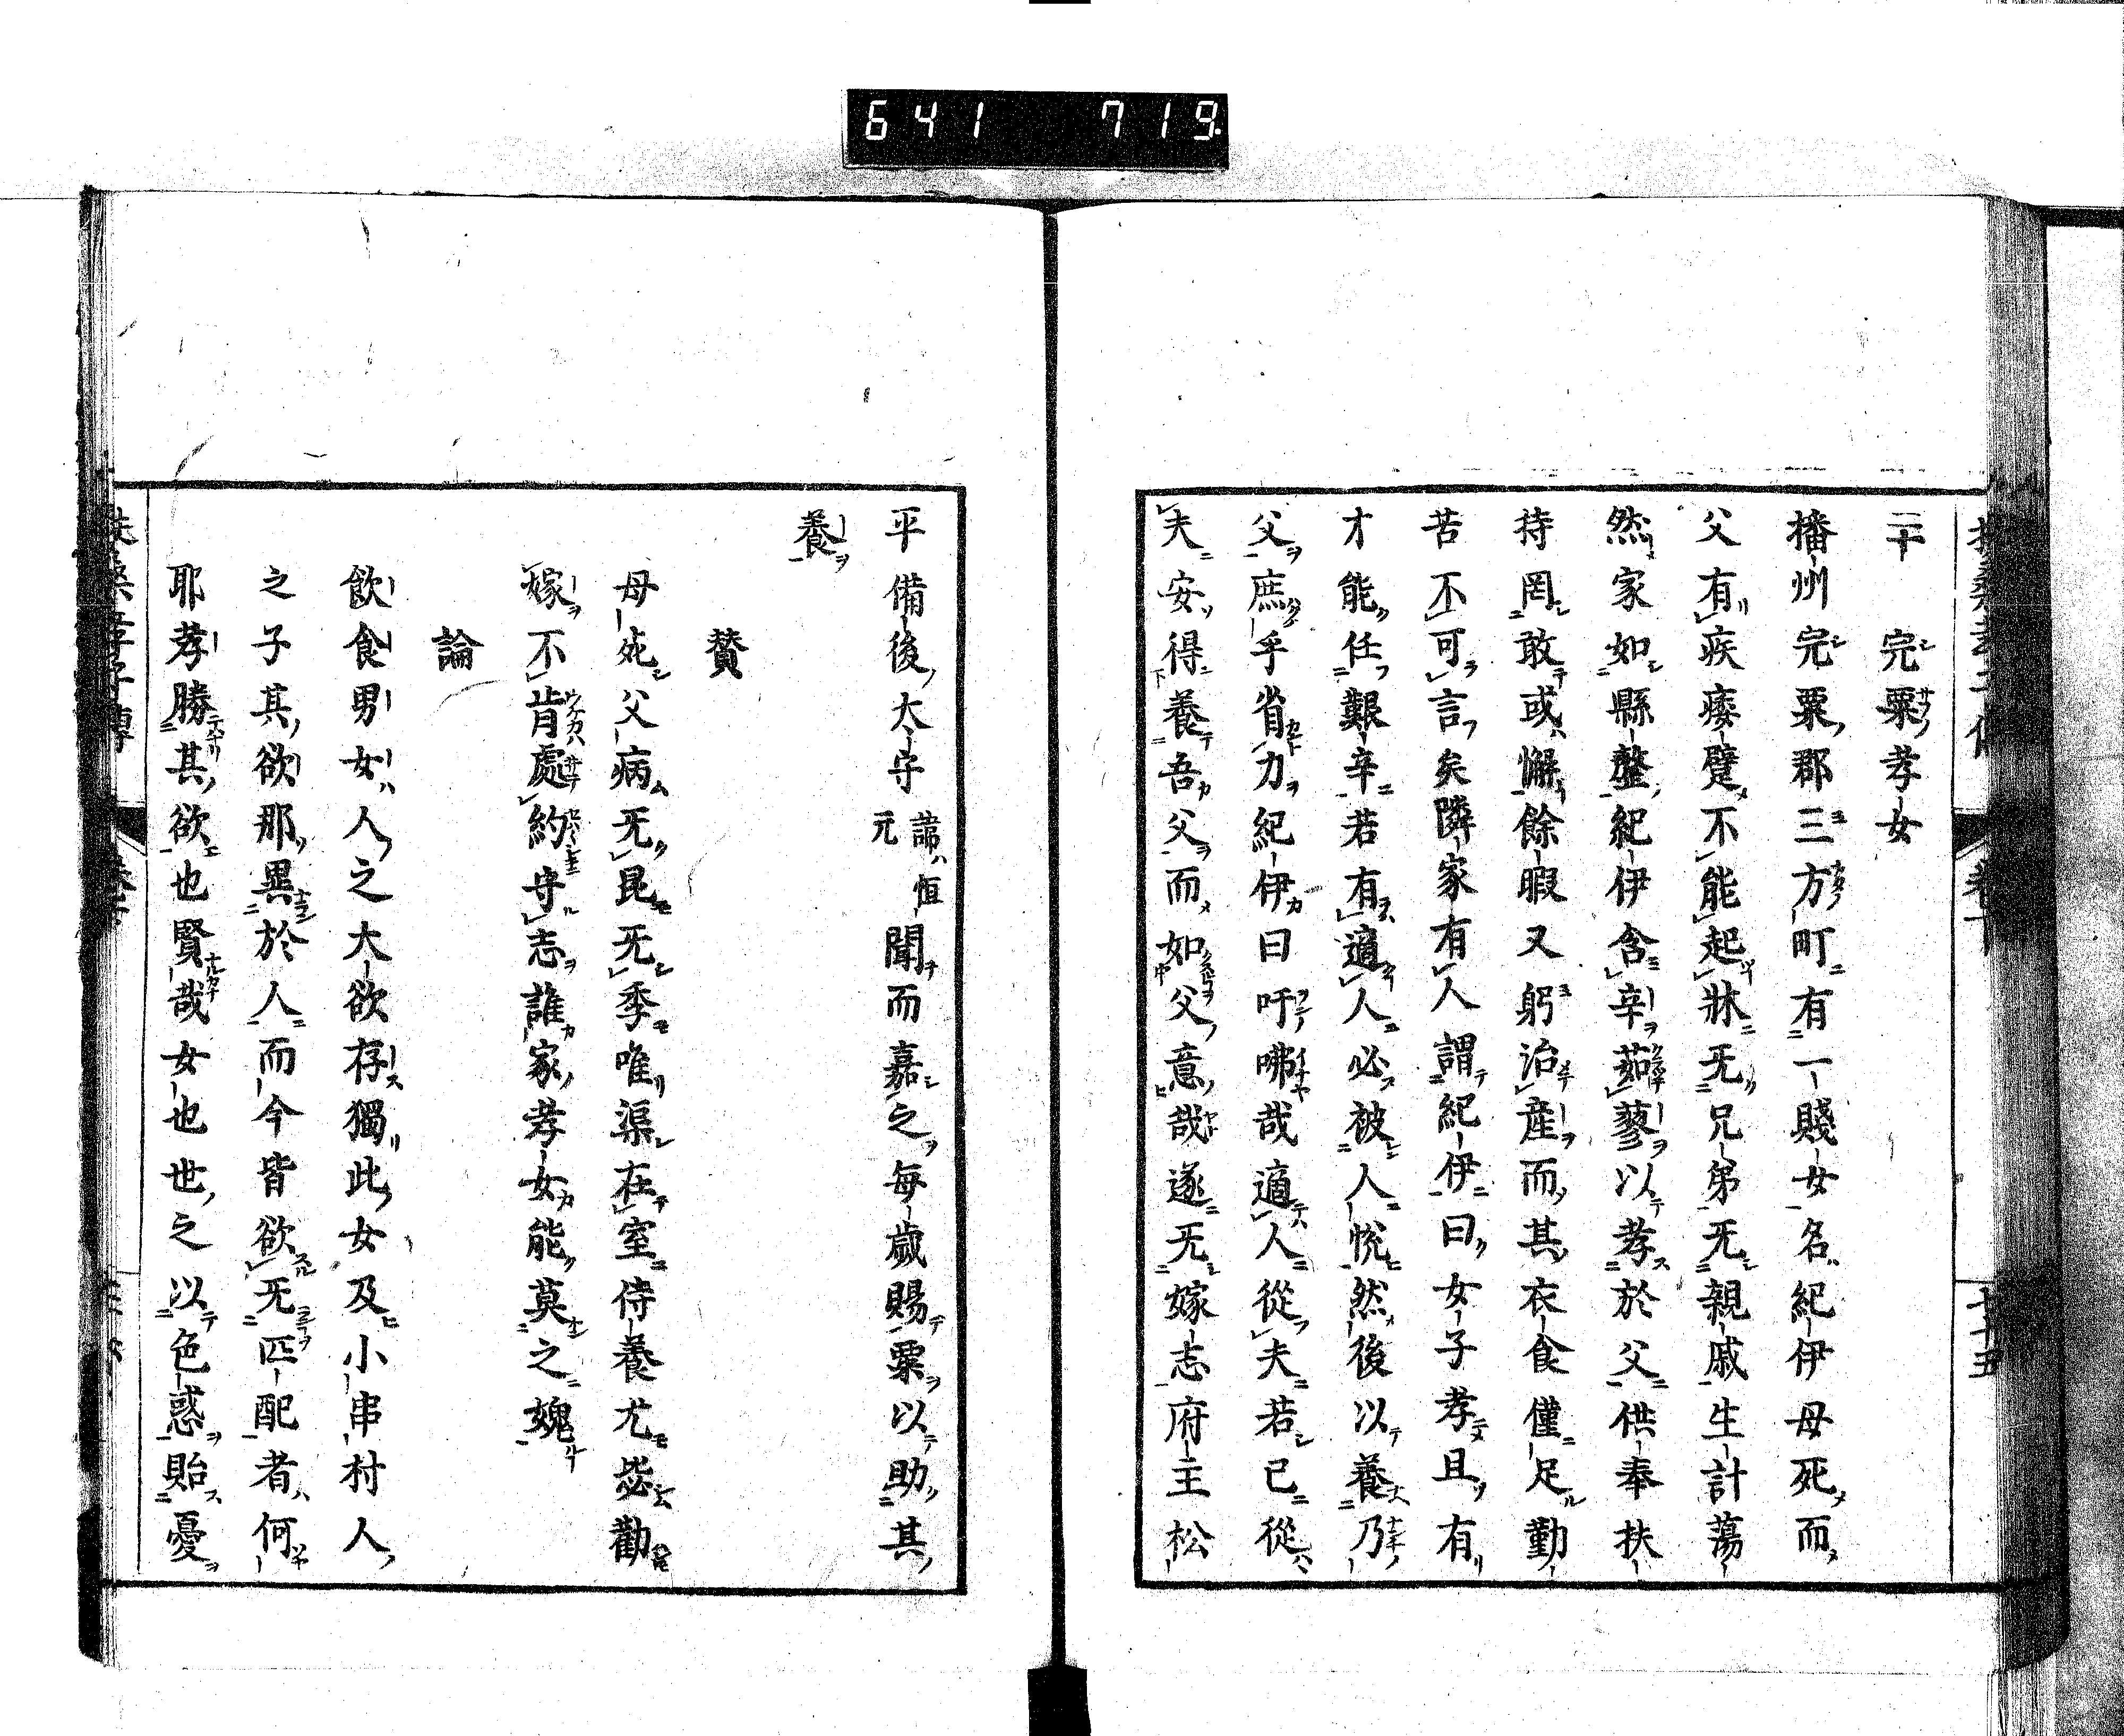 641 719
二十 完粟孝女
播州完粟郡三方町有一賤女名紀伊母死而
父有疾痿躄不能起牀无兄弟无親戚生計蕩
然家如縣罄紀伊含辛茹蓼以孝於父供奉扶
持罔敢或懈餘暇又躬治產而其衣食僅足勤
苦不可言矣隣家有人謂紀伊曰女子孝且有
才能任艱辛若有適人必被人悅然後以養乃
父庶乎省力紀伊曰吁咈哉適人從夫若已從
夫安得養吾父而如父意哉遂无嫁志府主松
平備後太守諱恒元聞而嘉之每歲賜粟以助其
養
贊
母死父病无昆无季唯渠在室侍養尤毖勸
嫁不肯處約守志誰家孝女能莫之媿
論
飲食男女人之大欲存獨此女及小串村人
之子其欲那異於人而今皆欲无匹配者何
耶孝勝其欲也賢哉女也世之以色惑貽憂